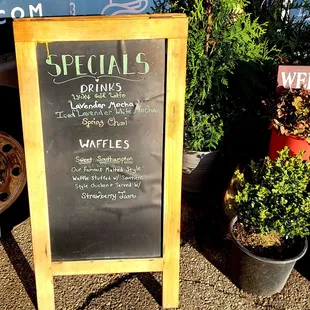 .COM
WE
SPECIALS
DRINKS
Gold Latte
Lavender Mocha
Iced Lavender White Mocha
Spring Chai
WAFFLES
Sweet Southampton
Our Famous Malted Style
Waffle Stuffed w/ Southern
Style Chicken & Served w/
Strawberry Jam